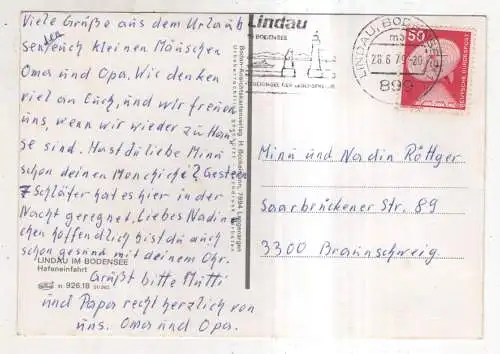 Viele Grüße aus dem Urlaub
den
senden euch kleinen Mäuschen
Oma und Opa. Wir denken
viel an Euch, und wir freuen
uns, wenn wir wieder zu Hau
se sind. Hast du liebe Minu
schon deinen Monchiche? Gestern
7 Schläfer hat es hier in der
Nacht geregnet. Liebes Nadin
chen hoffendlich bist du auch
schon gesund mit deinem Ohr.
Grüßt bitte Mutti
und Papa recht herzlich von
uns. Oma und Opa.
LINDAU IM BODENSEE
Hafeneinfahrt
926.18
Lindau
IM BODENSEE
LINDAU, BODENSEE
28.6.79-20
899
50
DEUTSCHE BUNDESPOST
Minu und Nadin Röttger
Saarbrückener Str. 89
3300 Braunschweig